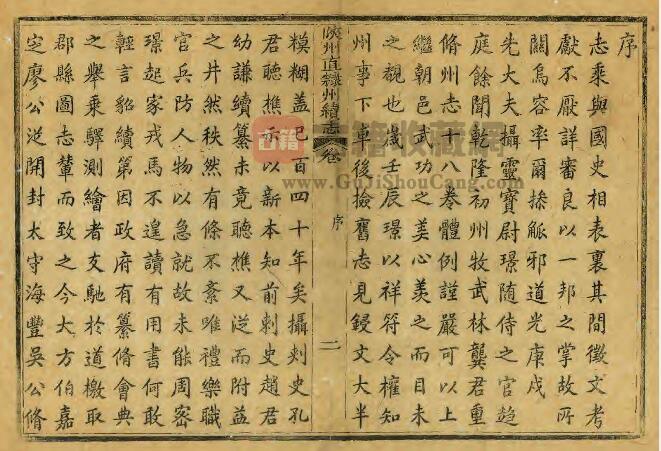 序
志乘與國史相表裏其間徵文考
獻不厭詳審良以一邦之掌故所
關烏容率爾操觚邪道光庚戌
先大夫攝靈寶尉璟隨侍之官趨
庭餘聞乾隆初州牧武林龔君重
脩州志十八卷體例謹嚴可以上
繼朝邑武功之美心羨之而目未
之覩也歲壬辰璟以祥符令權知
州事下車後檢舊志見鋟文大半
陝州直隸州續志 卷 序 二
模糊蓋已百四十年矣攝刺史孔
君聽樵示以新本知前刺史趙君
幼謙續纂未竟聽樵又從而附益
之井然秩然有條不紊唯禮樂職
官兵防人物以急就故未能周密
璟起家戎馬不遑讀有用書何敢
輕言貂續第因政府有纂脩會典
之舉乘驛測繪者交馳於道檄取
郡縣圖志輦而致之今大方伯嘉
定廖公從開封太守海豐吳公脩
古籍收藏网
www.GuJiShouCang.com